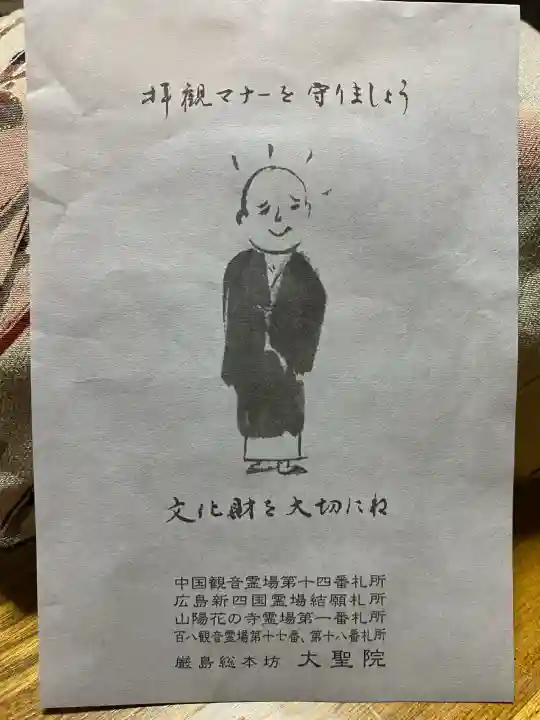 拝観マナーを守りましょう
文化財を大切にね
中国観音霊場第十四番札所
広島新四国霊場結願札所
山陽花の寺霊場第一番札所
百八観音霊場第十七番、第十八番札所
厳島総本坊 大聖院